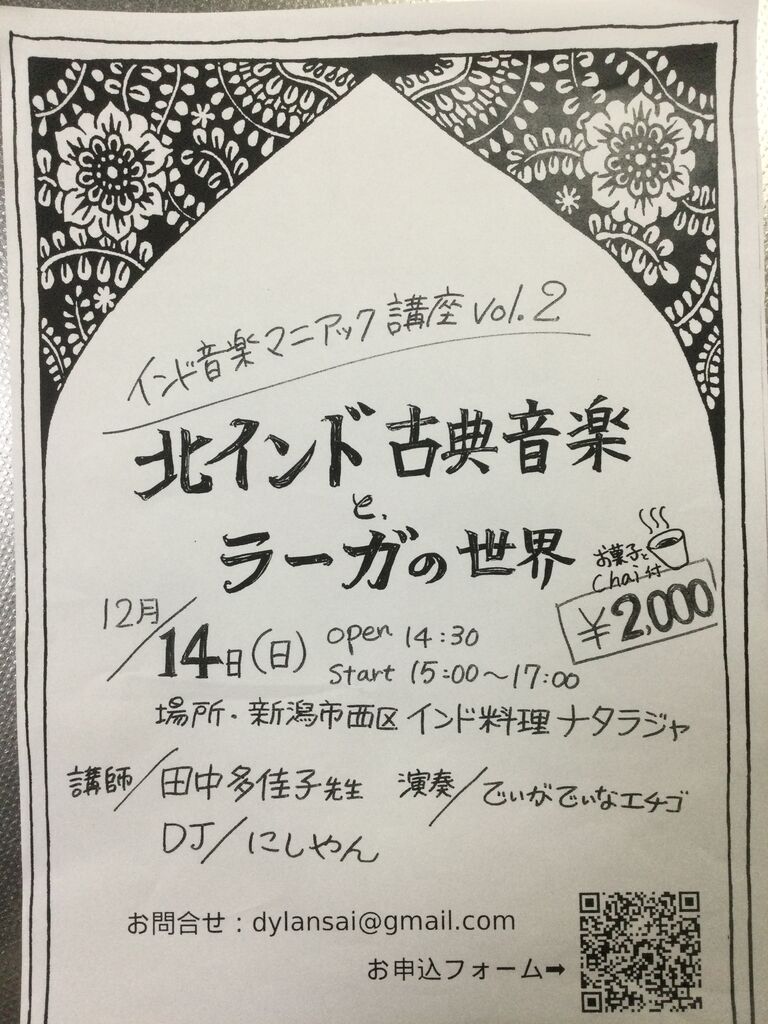 インド音楽マニアック講座 vol.2
北インド古典音楽
と、
ラーガの世界
お菓子と
chai付
¥2,000
12月/14日(日) open 14:30
start 15:00〜17:00
場所・新潟市西区 インド料理 ナタラジャ
講師/田中多佳子先生 演奏/でぃがでぃなエチゴ
DJ/にしやん
お問合せ：dylansai@gmail.com
お申込フォーム➡